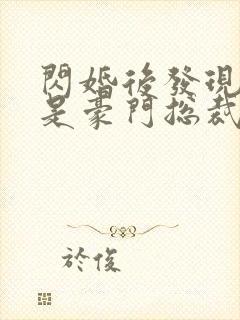 閃婚後發現
是豪門總裁
於俊